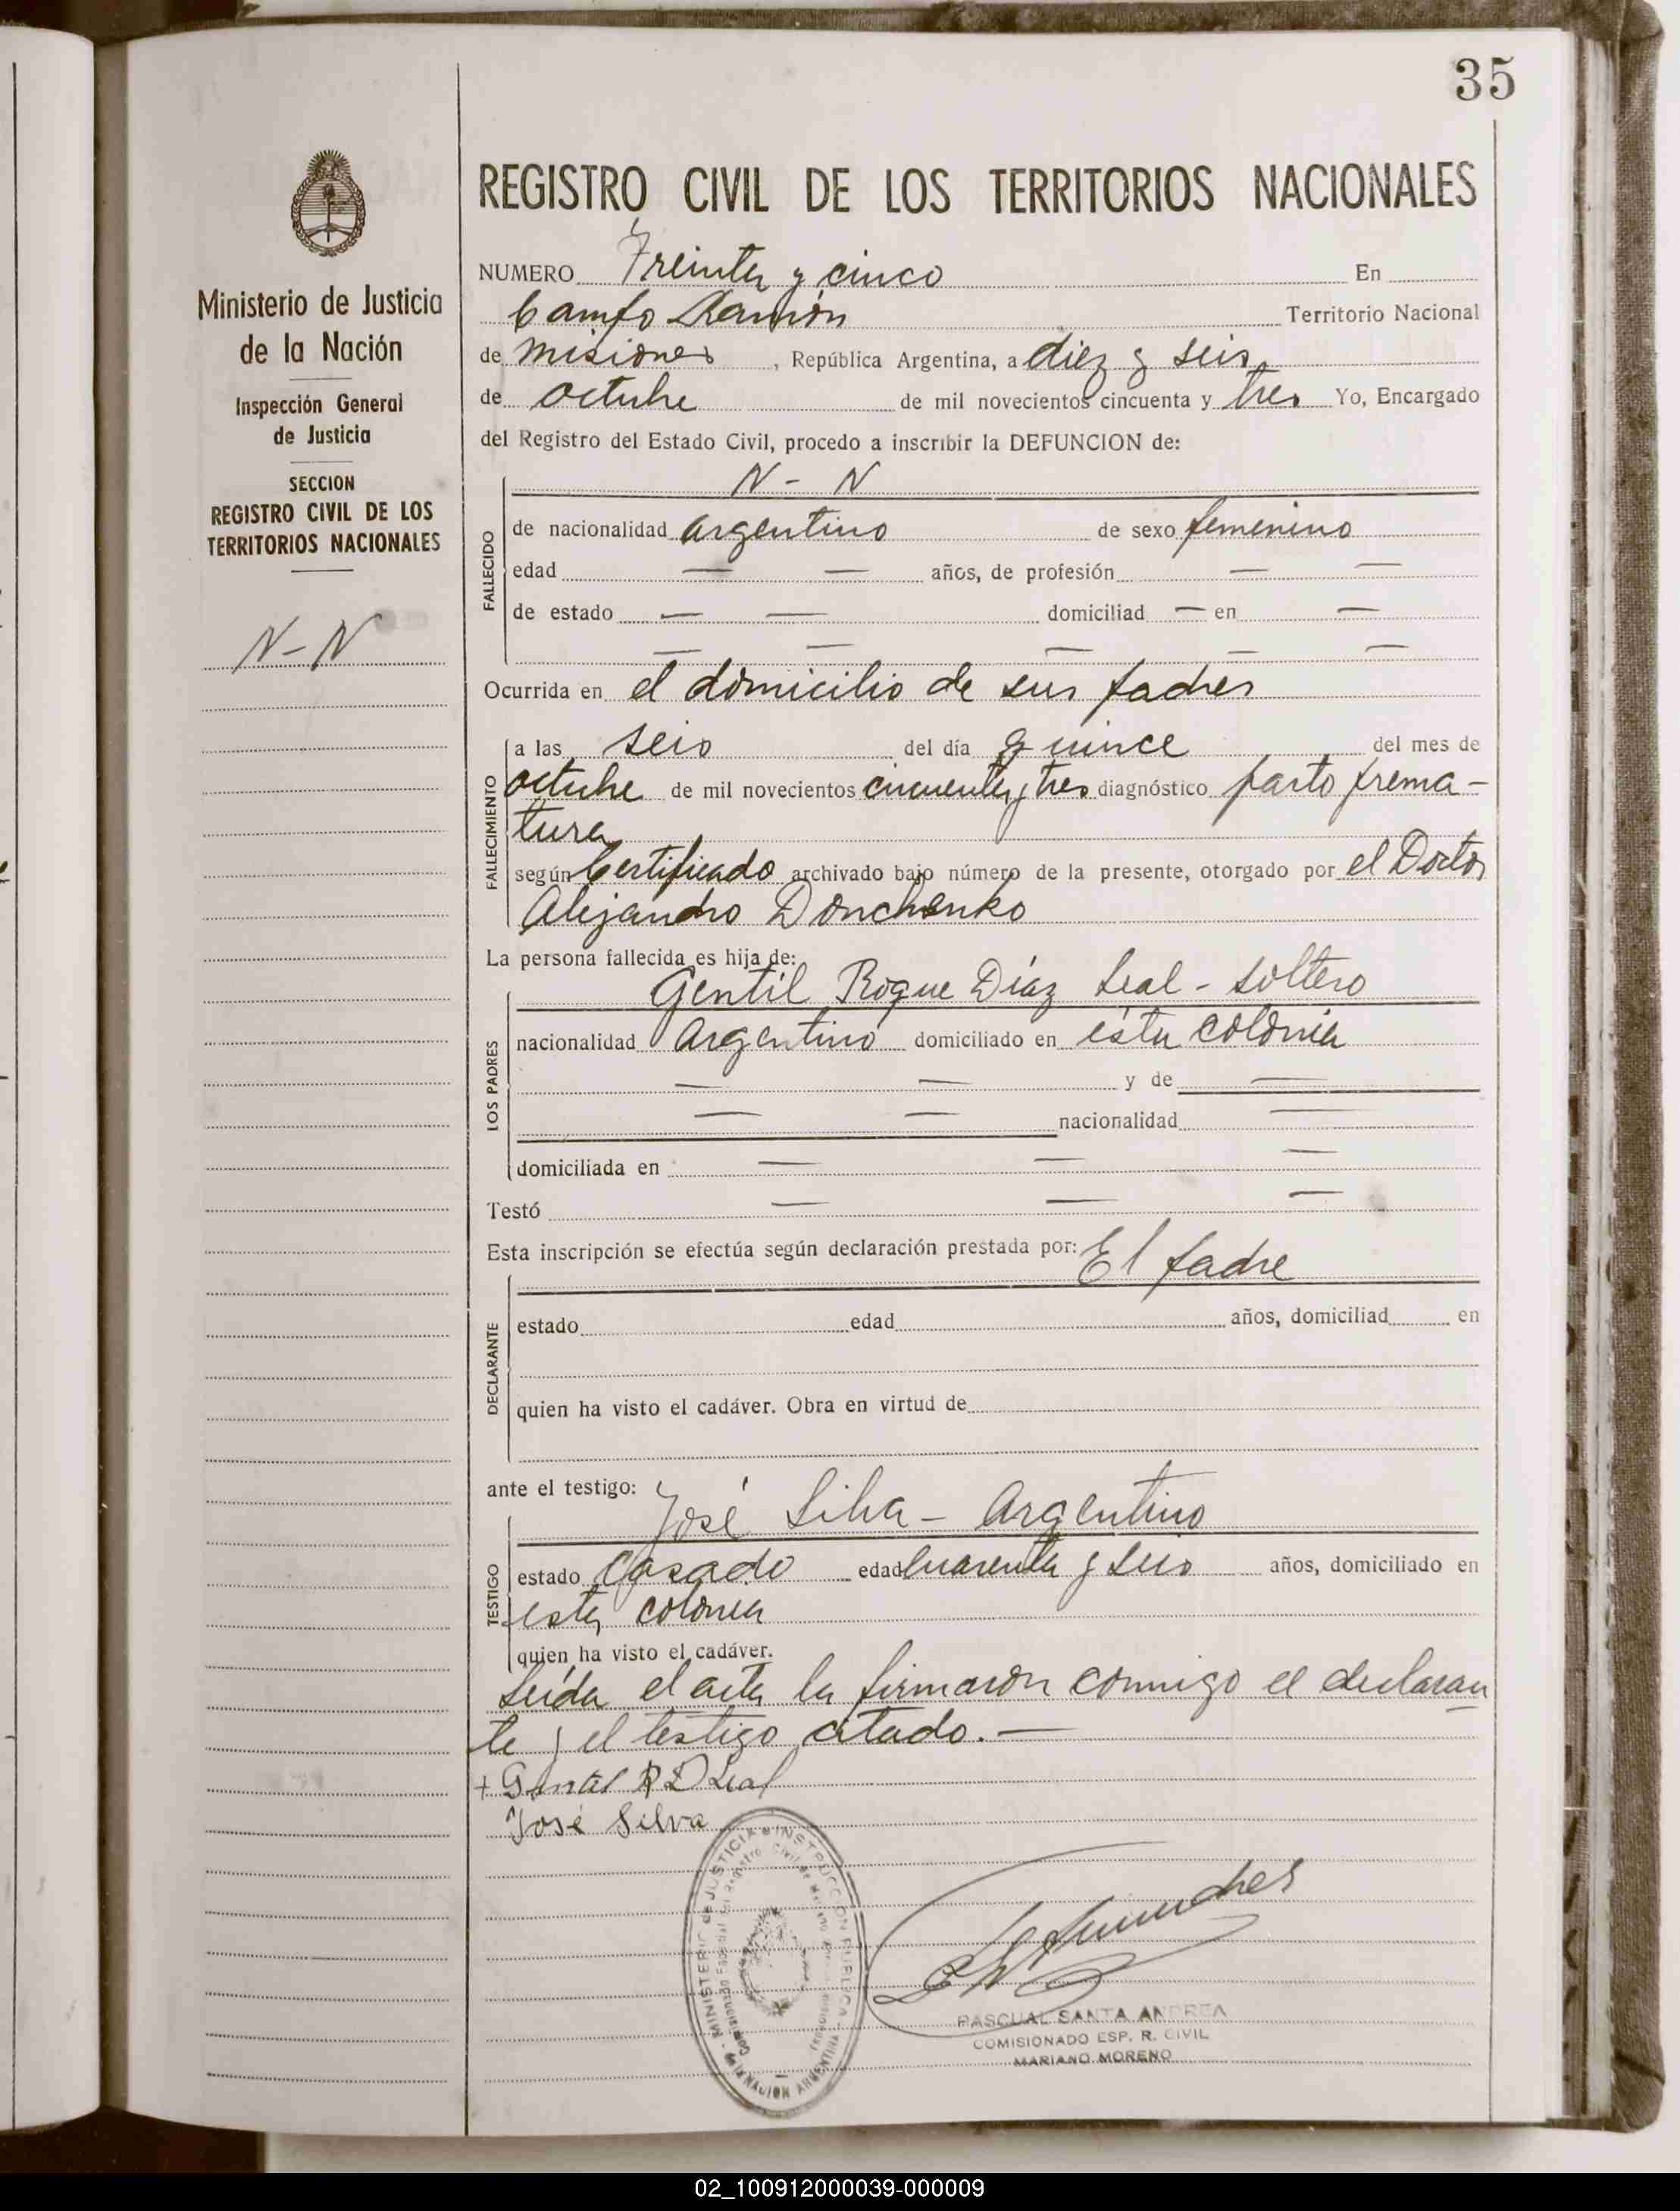 35
REGISTRO CIVIL DE LOS TERRITORIOS NACIONALES
Ministerio de Justicia
de la Nación
Inspección General
de Justicia
SECCION
REGISTRO CIVIL DE LOS
TERRITORIOS NACIONALES
N-N
NUMERO Treinta y cinco En
Campo Ramón Territorio Nacional
de misiones, República Argentina, a diez y seis
de octubre de mil novecientos cincuenta y tres Yo, Encargado
del Registro del Estado Civil, procedo a inscribir la DEFUNCION de:
N - N
FALLECIDO
de nacionalidad argentino de sexo femenino
edad — — años, de profesión — —
de estado — — domiciliad — en —
— — — — —
Ocurrida en el domicilio de sus padres
FALLECIMIENTO
a las seis del día quince del mes de
octubre de mil novecientos cincuenta y tres diagnóstico parto prema-
tura
según Certificado archivado bajo número de la presente, otorgado por el Doctor
Alejandro Donchenko
La persona fallecida es hija de:
LOS PADRES
Gentil Roque Díaz Leal - soltero
nacionalidad Argentino domiciliado en ésta colonia
— — y de —
— — nacionalidad —
domiciliada en — — —
Testó — — —
Esta inscripción se efectúa según declaración prestada por: El padre
DECLARANTE
estado edad años, domiciliad en
quien ha visto el cadáver. Obra en virtud de
ante el testigo:
TESTIGO
José Silva - Argentino
estado Casado edad Cuarenta y seis años, domiciliado en
esta colonia
quien ha visto el cadáver.
Leída el acta la firmaron conmigo el declaran
te y el testigo citado. —
+ Gentil R D Leal
José Silva
MINISTERIO de JUSTICIA e INSTRUCCION PUBLICA
NACION ARGENTINA
PASCUAL SANTA ANDREA
COMISIONADO ESP. R. CIVIL
MARIANO MORENO
02_100912000039-000009